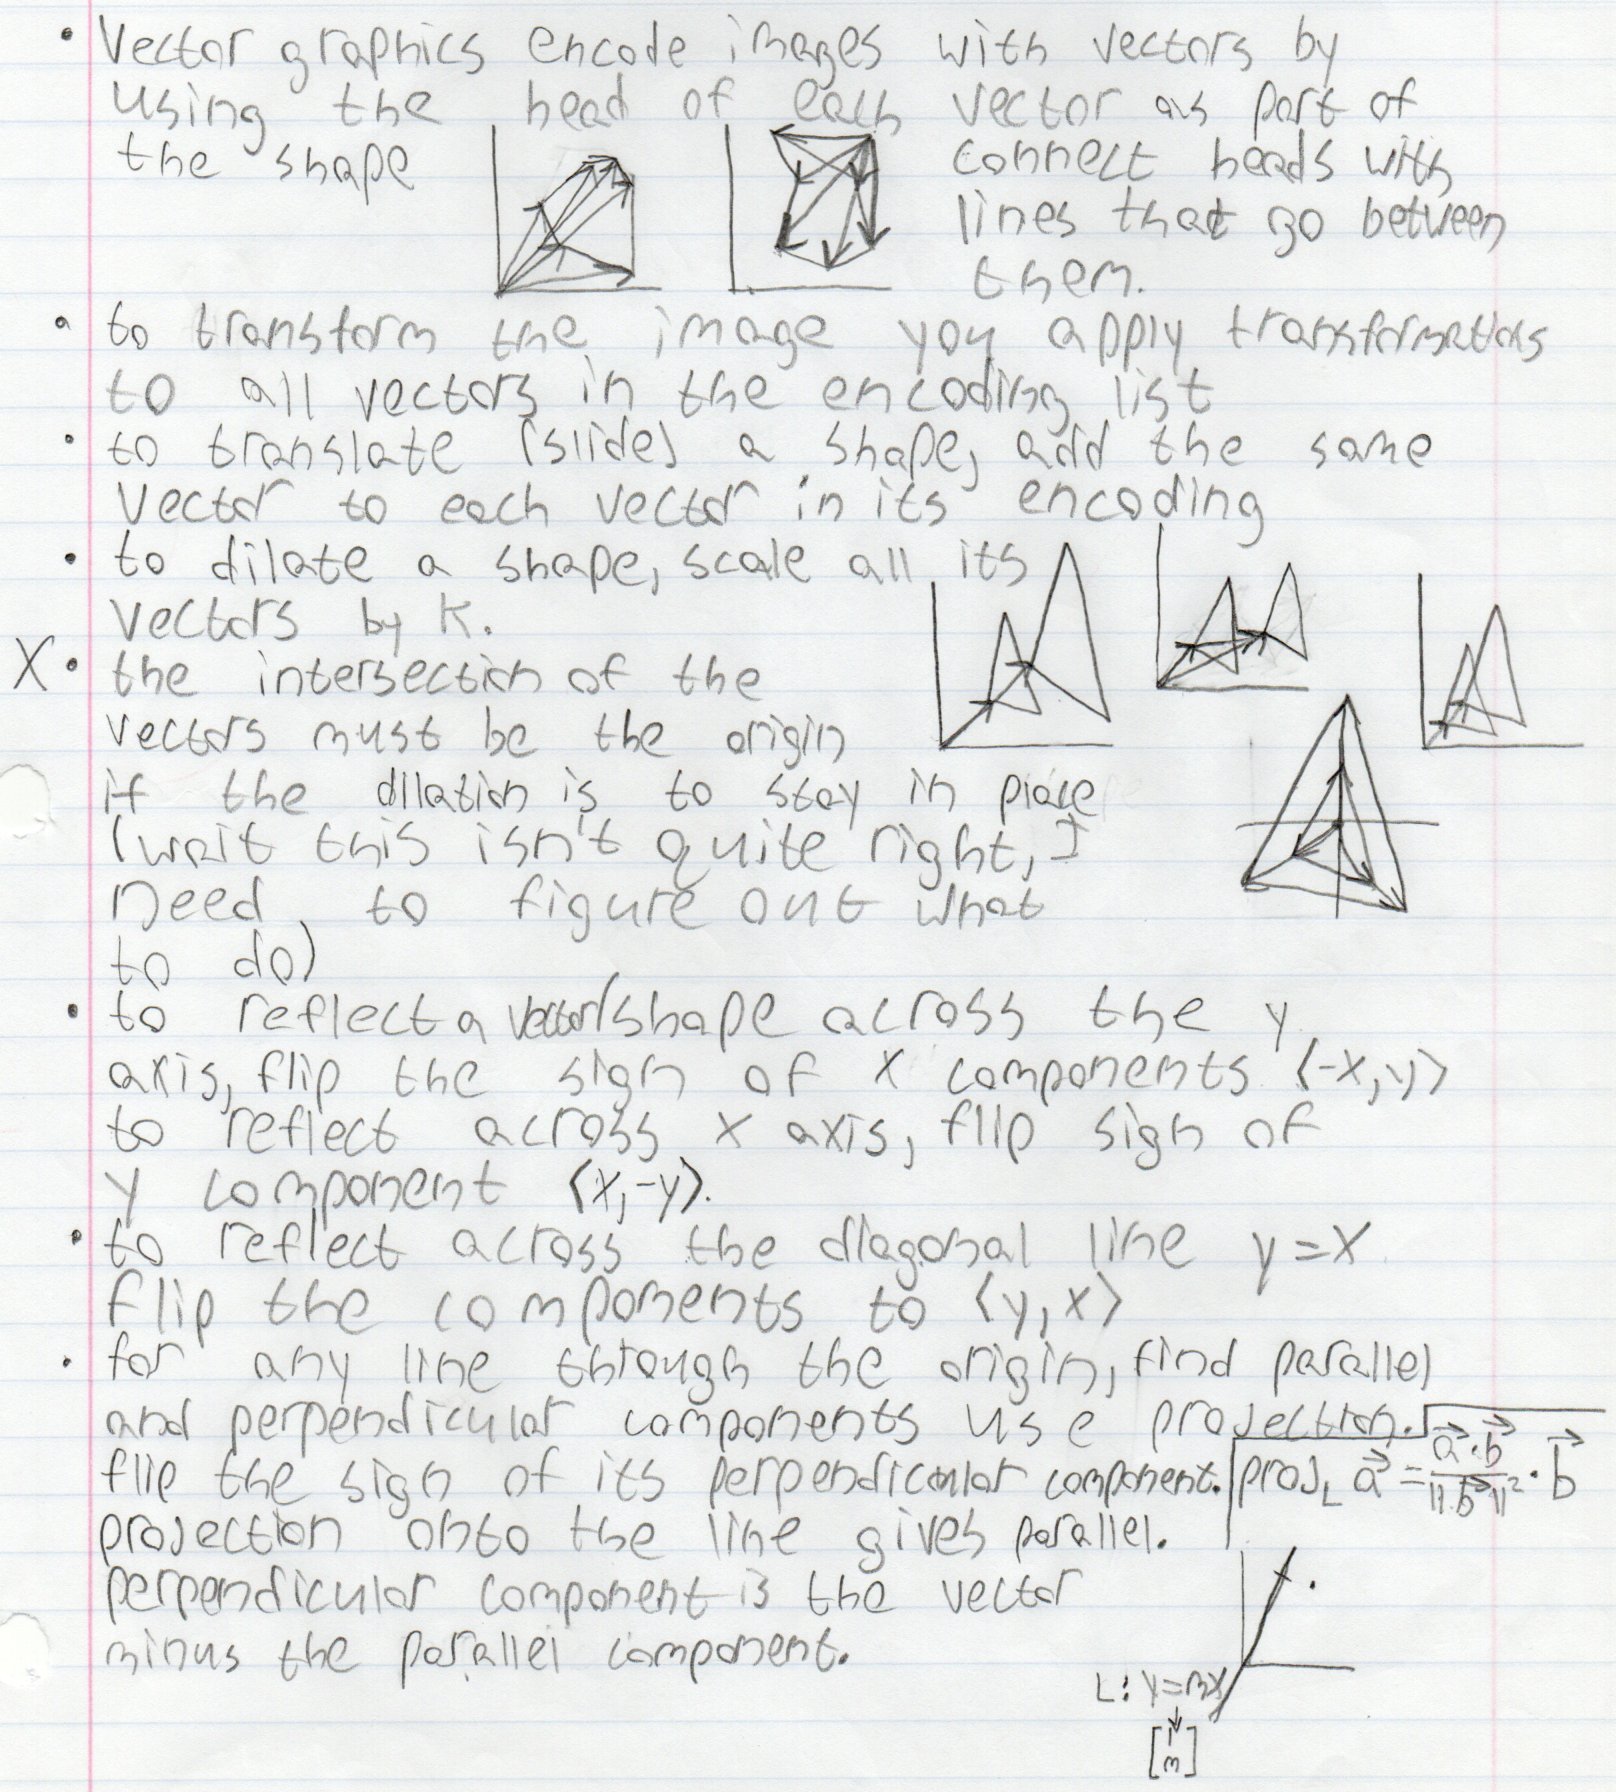 • Vector graphics encode images with vectors by
using the head of each vector as part of
the shape
connect heads with
lines that go between
them.
• to transform the image you apply transformations
to all vectors in the encoding list
• to translate (slide) a shape, add the same
vector to each vector in its encoding
• to dilate a shape, scale all its
vectors by K.
X • the intersection of the
vectors must be the origin
if the dilation is to stay in place
(wait this isn't quite right, I
need to figure out what
to do)
• to reflect a vector/shape across the y
axis, flip the sign of x components ⟨-x,y⟩
to reflect across x axis, flip sign of
y component ⟨x,-y⟩.
• to reflect across the diagonal line y=x
flip the components to ⟨y,x⟩
• for any line through the origin, find parallel
and perpendicular components use projection.
flip the sign of its perpendicular component.
proj_L a⃗ = (a⃗·b⃗)/||b⃗||² · b⃗
projection onto the line gives parallel.
perpendicular component is the vector
minus the parallel component.
L: y=mx
↓
[1
m]